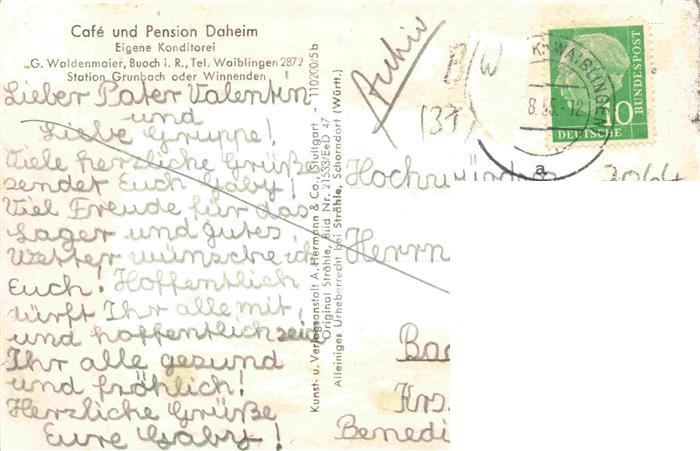 Café und Pension Daheim
Eigene Konditorei
G. Waldenmaier, Buoch i. R., Tel. Waiblingen 2872
Station Grunbach oder Winnenden
Lieber Pater Valentin
und
Liebe Gruppe!
Viele herzliche Grüße
sendet Euch Gaby!
Viel Freude für das
Lager und gutes
Wetter wünsche ich
Euch! Hoffentlich
dürft Ihr alle mit,
und hoffentlich seid
Ihr alle gesund
und fröhlich!
Herzliche Grüße
Eure Gaby!
Kunst- u. Verlagsanstalt A. Hermann & Co., Stuttgart - 110200/5b
Original Strähle, Bild Nr. 21533/EeD 47
Alleiniges Urheberrecht bei Strähle, Schorndorf (Württ.)
Archiv
WAIBLINGEN
a
10
DEUTSCHE
BUNDESPOST
Herrn
Krs.